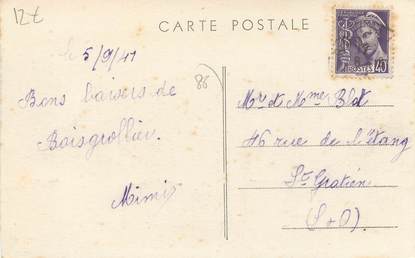 12€
CARTE POSTALE
le 5/9/41
Bons baisers de
Boisgrollier.
Mimi
86
POSTES 40
Mr et Mme Blot
46 rue de l'Etang
St Gratien
(S+O).